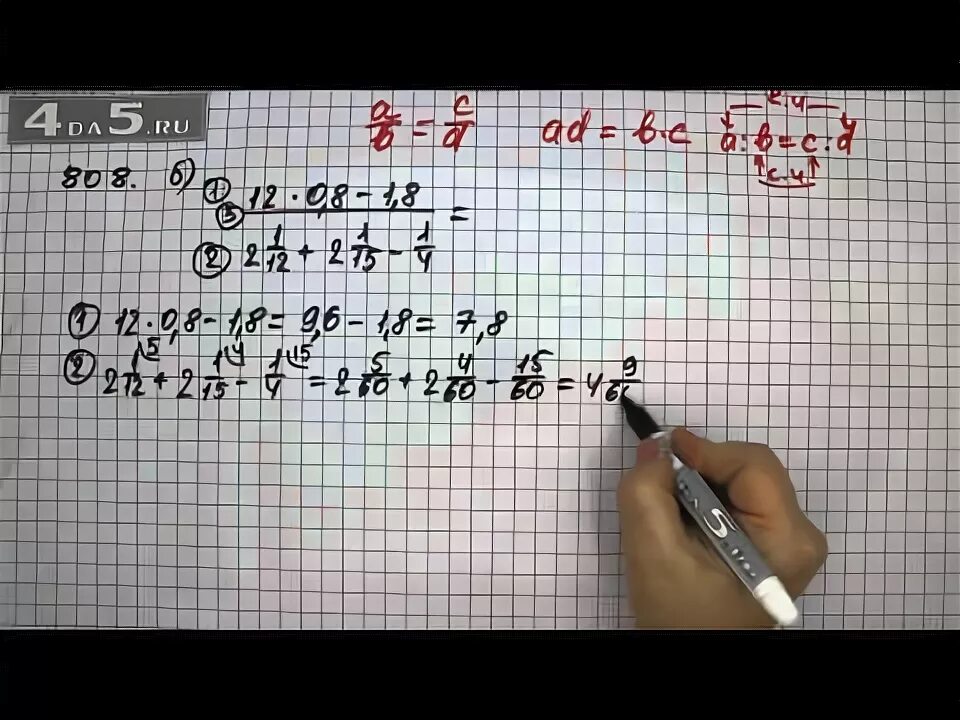 4DA5.RU
a/b = c/d ad = b·c a:b=c:d
к.ч
с.ч
808. б) ① 12·0,8-1,8
③ =
② 2 1/12 + 2 1/15 - 1/4
① 12·0,8-1,8= 9,6-1,8= 7,8
② 2 1/12 ⁵ + 2 1/15 ⁴ - 1/4 ¹⁵ = 2 5/60 + 2 4/60 - 15/60 = 4 9/6